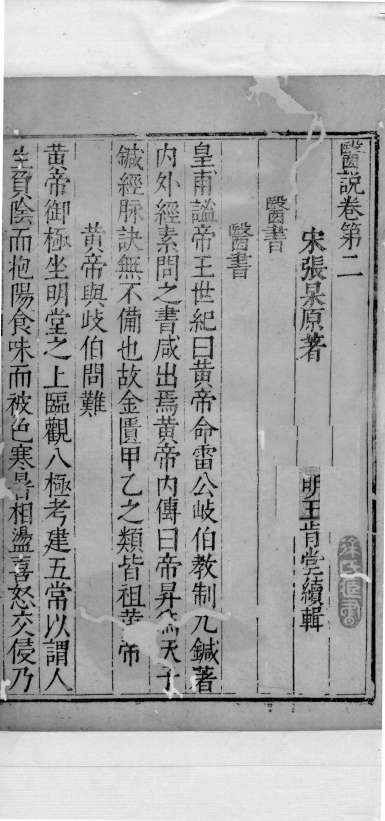 醫說卷第二
宋張杲原著
明王肯堂續輯
醫書
醫書
皇甫謐帝王世紀曰黄帝命雷公岐伯教制九鍼著
内外經素問之書咸出焉黄帝内傳曰帝昇爲天子
鍼經脉訣無不備也故金匱甲乙之類皆祖黄帝
黄帝與歧伯問難
黄帝御極坐明堂之上臨觀八極考建五常以謂人
生負陰而抱陽食味而被色寒暑相盪喜怒交侵乃